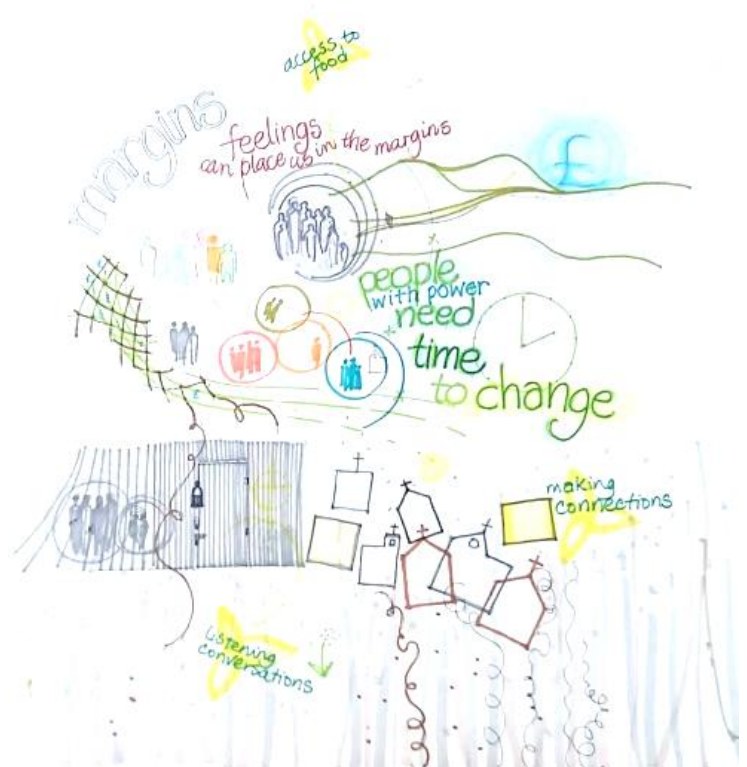 access to
food
margins
feelings
can place us in the margins
£
people
with power
need
time
to change
making
connections
listening
conversations